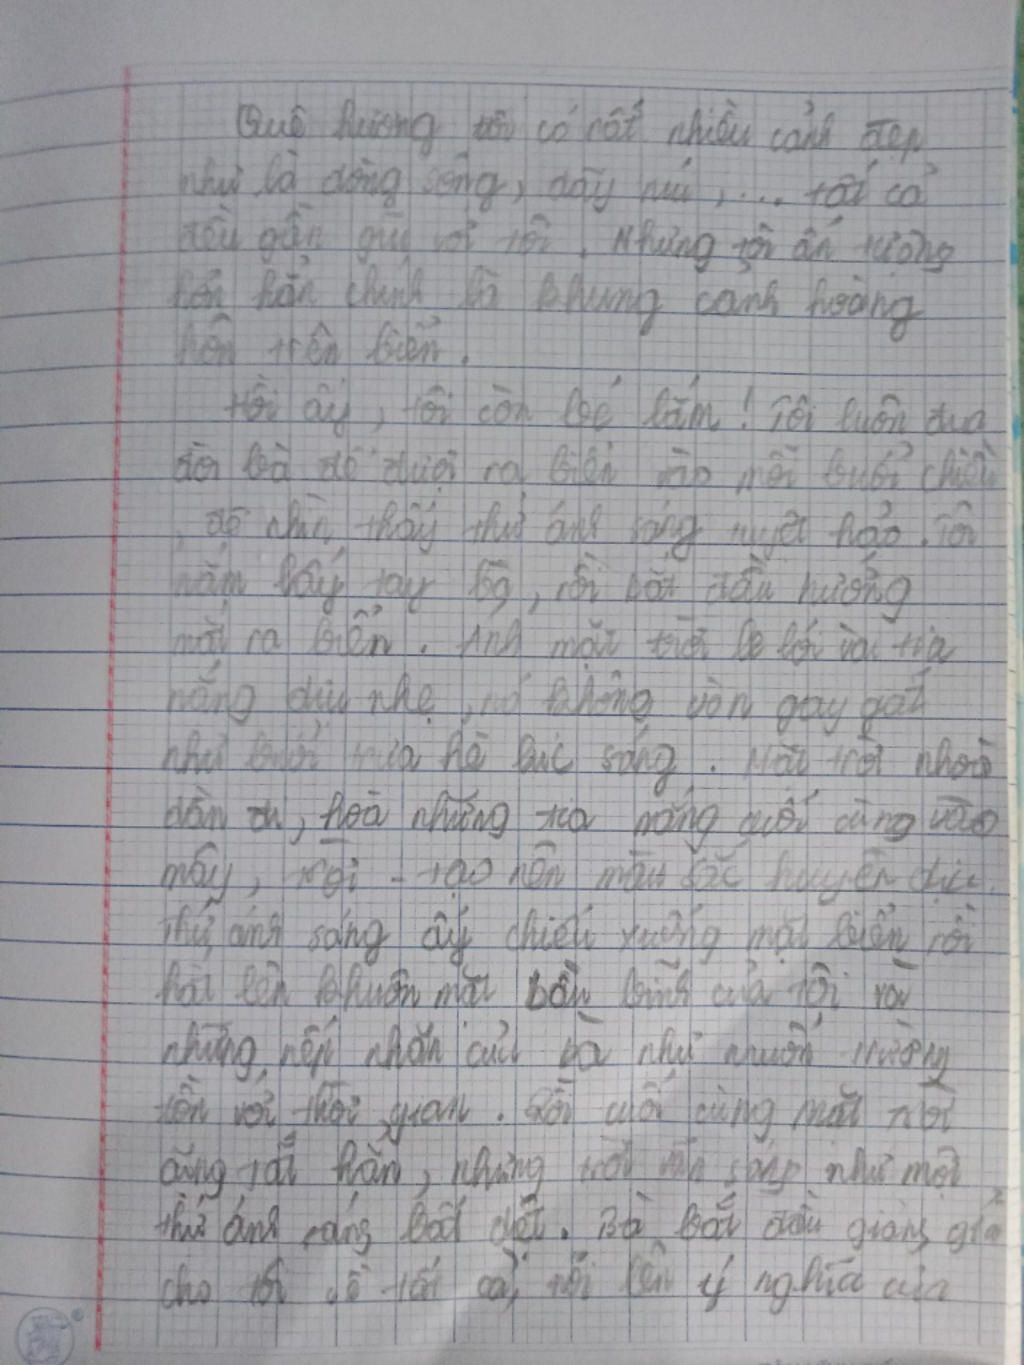 Quê hương tôi có rất nhiều cảnh đẹp
như là dòng sông, dãy núi, ... tất cả
đều gần gũi với tôi. Nhưng tôi ấn tượng
hơn hẳn chính là khung cảnh hoàng
hôn trên biển.
Hồi ấy, tôi còn bé lắm! Tôi luôn đưa
đòi bà để được ra biển vào mỗi buổi chiều
, để nhìn thấy thứ ánh sáng tuyệt hảo. Tôi
nắm lấy tay bà, rồi bắt đầu hướng
mắt ra biển. Ánh mặt trời le lói vài tia
nắng dịu nhẹ, nó không còn gay gắt
như buổi trưa hè lúc sáng. Mặt trời nhoà
dần đi, hoà những tia nắng cuối cùng vào
mây, rồi - tạo nên màu sắc huyền dịu.
Thứ ánh sáng ấy chiếu xuống mặt biển rồi
hắt lên khuôn mặt bầu bĩnh của tôi và
những nếp nhăn của bà như muốn trường
tồn với thời gian. Rồi cuối cùng mặt trời
cũng tắt hẳn, nhưng trời vẫn sáng như một
thứ ánh sáng bất diệt. Bà bắt đầu giảng giải
cho tôi về tất cả, nói lên ý nghĩa của